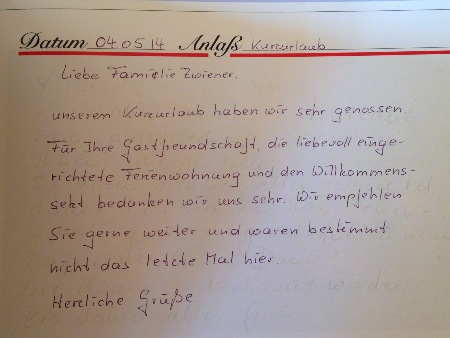 Datum 04.05.14 Anlaß Kurzurlaub
Liebe Famielie Zwiener,
unseren Kurzurlaub haben wir sehr genossen.
Für Ihre Gastfreundschaft, die liebevoll einge-
richtete Ferienwohnung und den Willkommens-
sekt bedanken wir uns sehr. Wir empfehlen
Sie gerne weiter und waren bestimmt
nicht das letzte Mal hier.
Herzliche Grüße